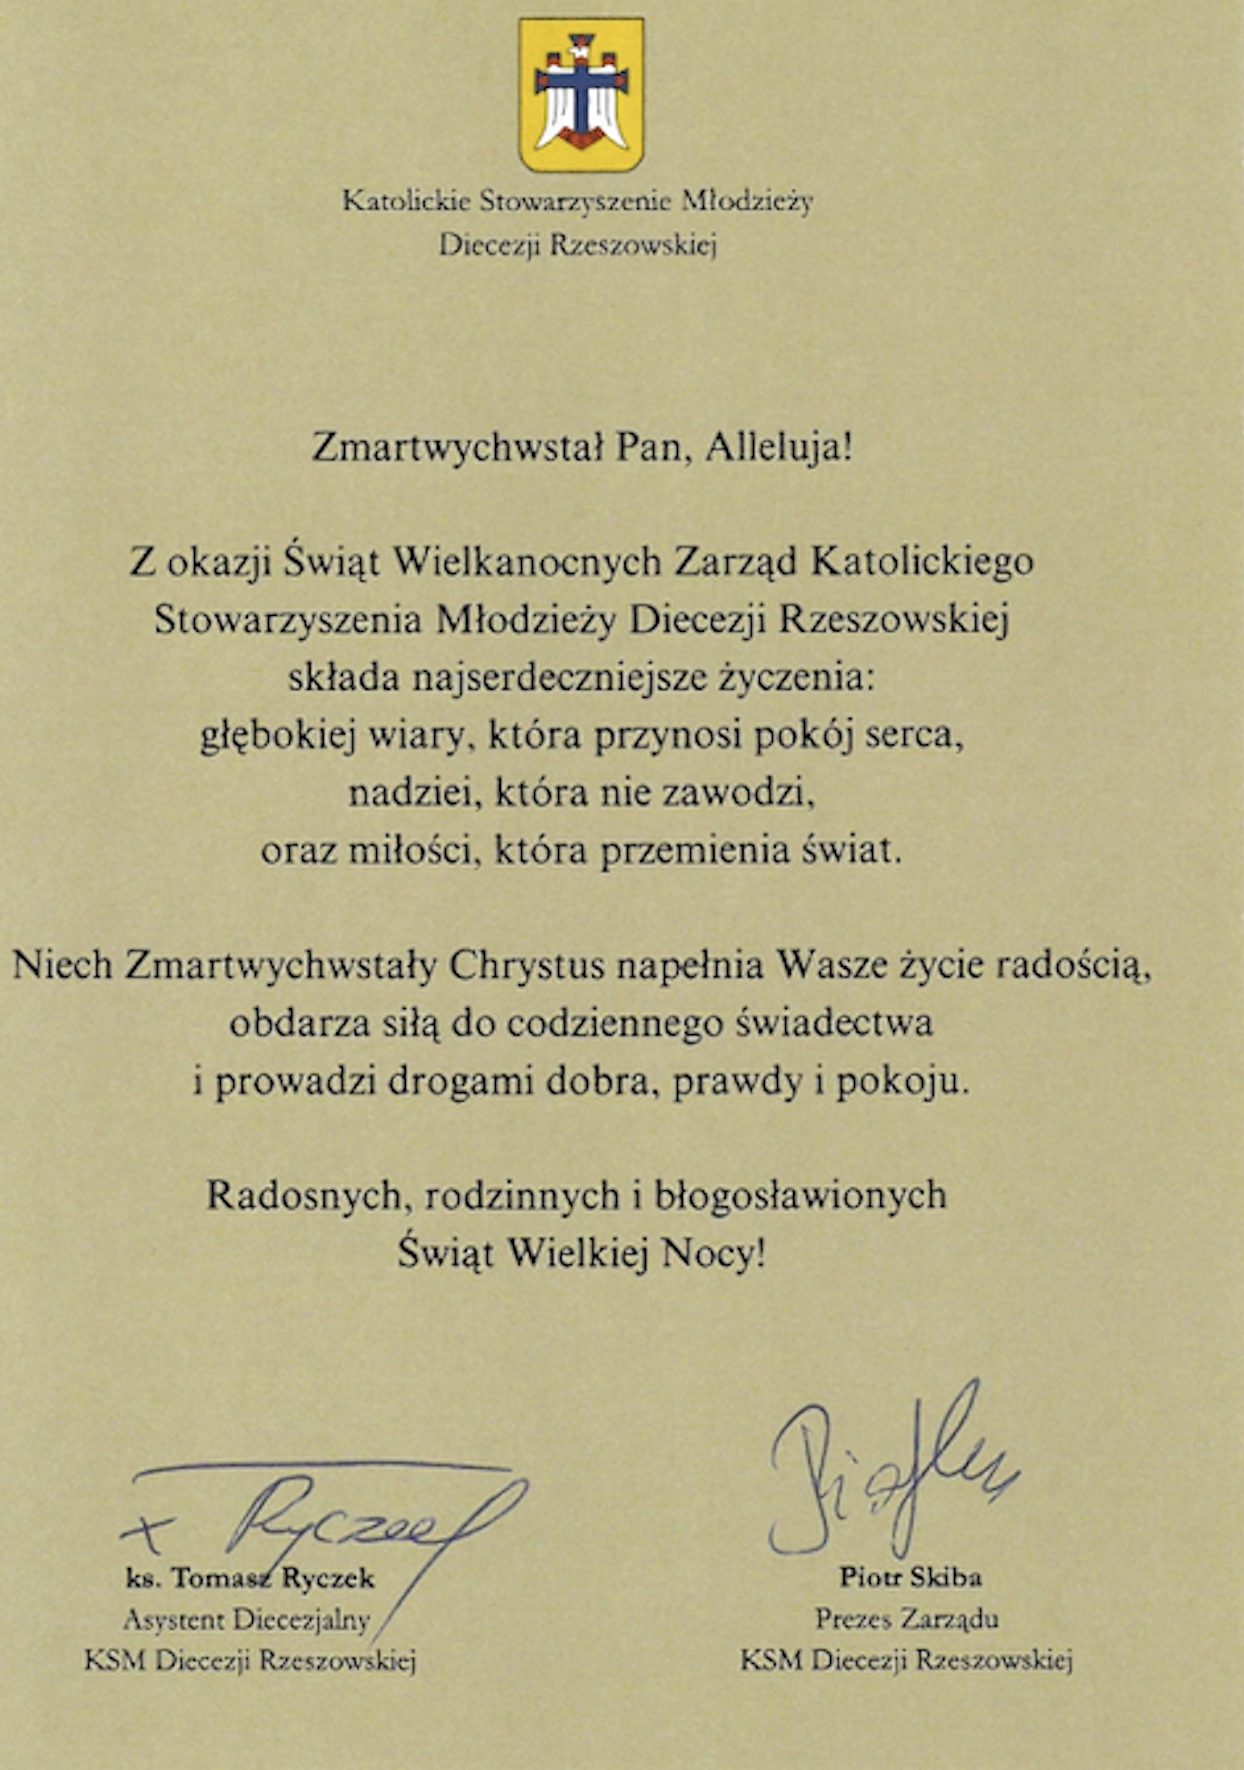 Katolickie Stowarzyszenie Młodzieży
Diecezji Rzeszowskiej
Zmartwychwstał Pan, Alleluja!
Z okazji Świąt Wielkanocnych Zarząd Katolickiego
Stowarzyszenia Młodzieży Diecezji Rzeszowskiej
składa najserdeczniejsze życzenia:
głębokiej wiary, która przynosi pokój serca,
nadziei, która nie zawodzi,
oraz miłości, która przemienia świat.
Niech Zmartwychwstały Chrystus napełnia Wasze życie radością,
obdarza siłą do codziennego świadectwa
i prowadzi drogami dobra, prawdy i pokoju.
Radosnych, rodzinnych i błogosławionych
Świąt Wielkiej Nocy!
x Ryczek
ks. Tomasz Ryczek
Asystent Diecezjalny
KSM Diecezji Rzeszowskiej
Piotr Skiba
Prezes Zarządu
KSM Diecezji Rzeszowskiej